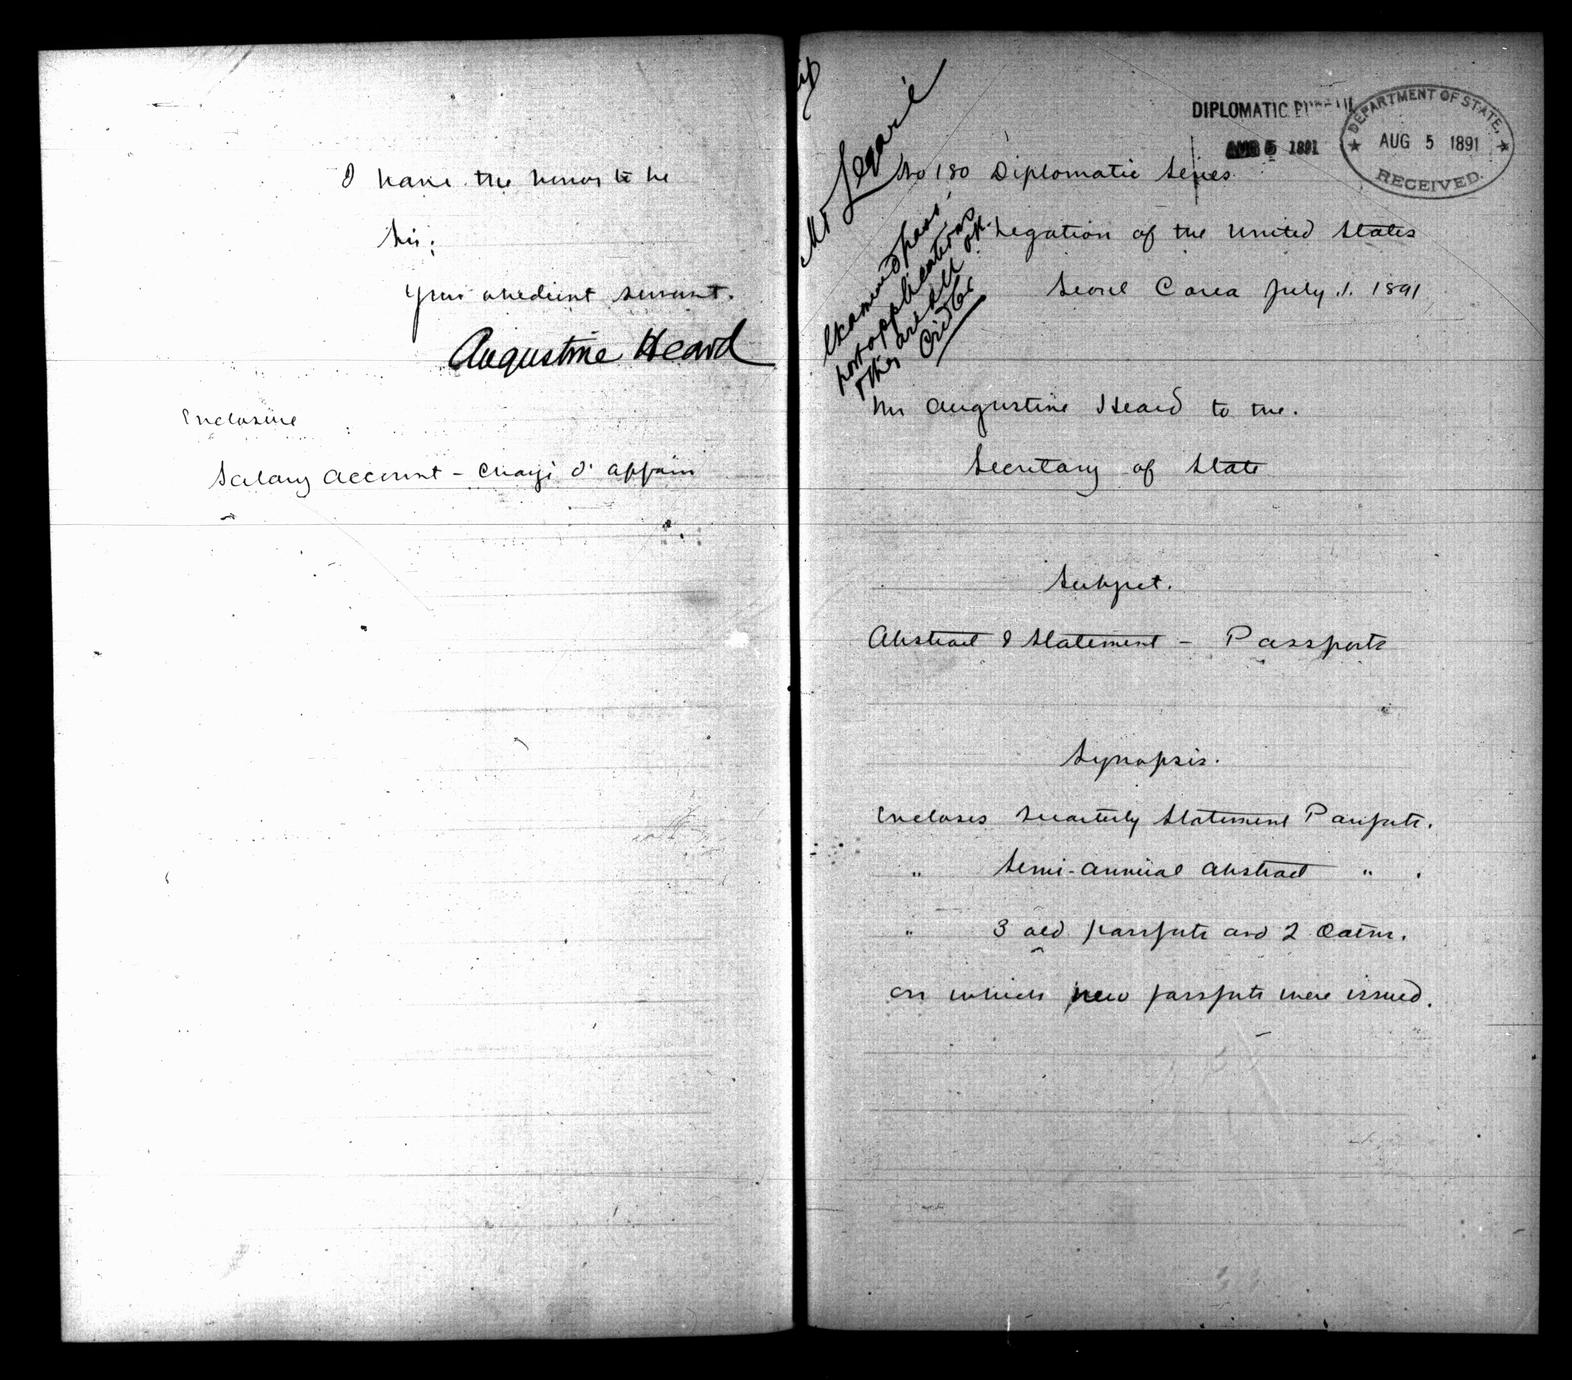 I have the honor to be
Sir;
Your obedient servant.
Augustine Heard
Enclosure
Salary account - Chargé d' affairs
Mr Segar
DIPLOMATIC BUREAU
AUG 5 1891
DEPARTMENT OF STATE.
AUG 5 1891
RECEIVED.
No 180 Diplomatic Series
Legation of the United States
Seoul Corea July 1. 1891
Examined pass-
port applications
they are all OK.
Cridler
Mr Augustine Heard to the.
Secretary of State
Subject.
Abstract & Statement - Passports
Synopsis.
Encloses Quarterly Statement Passports.
" Semi-Annual Abstract " .
" 3 old passports and 2 Oaths.
on which new passports were issued.